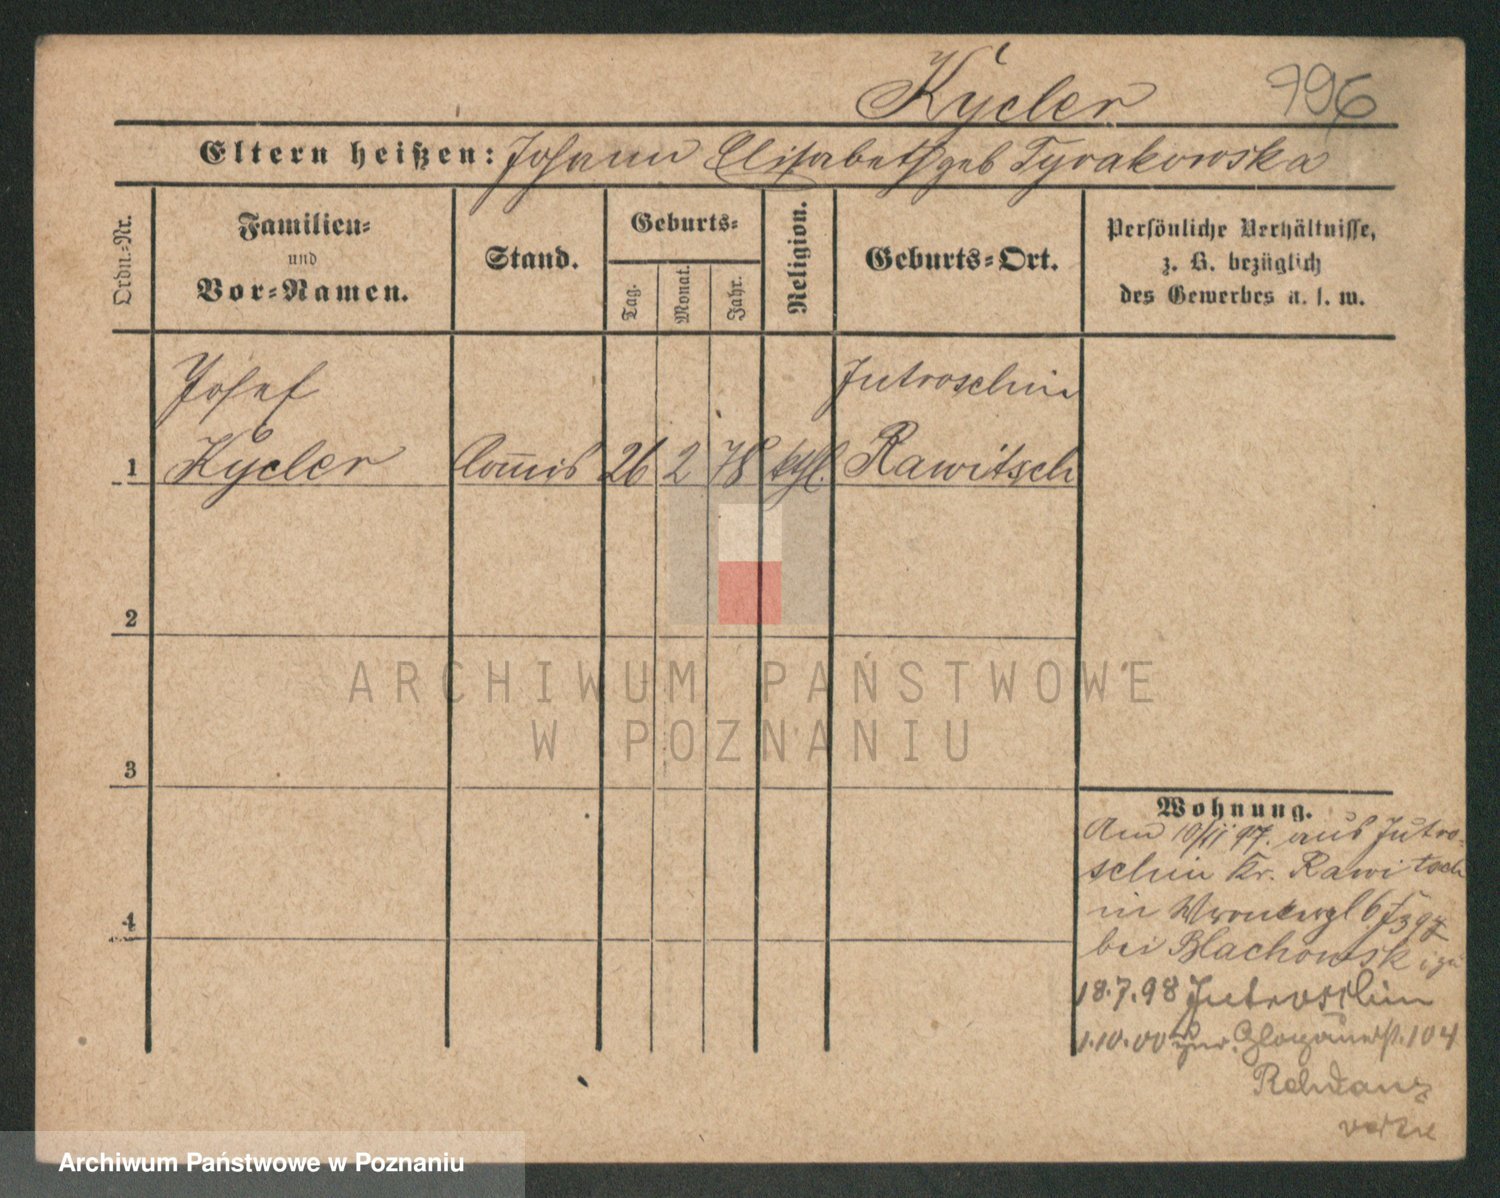 Kycler 796
Eltern heißen: Johann Elisabeth geb Tyrakowska
Ordn.-Nr.
Familien-
und
Vor-Namen.
Stand.
Geburts-
Tag.
Monat.
Jahr.
Religion.
Geburts-Ort.
Persönliche Verhältnisse,
z. B. bezüglich
des Gewerbes u. s. w.
Josef Jutroschin
1 Kycler Com̅is 26 2 78 kthl. Rawitsch
2
3
4
Wohnung.
Am 10/11 97. aus Jutro-
schin Kr. Rawitsch
in
bei Blachowski
18.7.98 Jutroschin
1.10.00 zur. Glogauerst. 104
ARCHIWUM PAŃSTWOWE
W POZNANIU
Archiwum Państwowe w Poznaniu